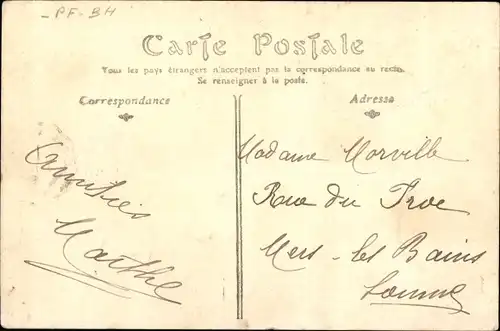 PF-BH
Carte Postale
Tous les pays étrangers n'acceptent pas la correspondance au recto.
Se renseigner à la poste.
Correspondance
Adresse
Amitiés
Marthe
Madame Morville
Rue du
Mers-les Bains
Somme